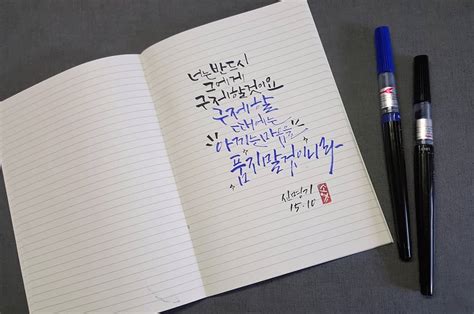 너는반드시
그에게
구제할것이요
구제할
때에는
아끼는마음을
품지말것이니라
신명기
15:10